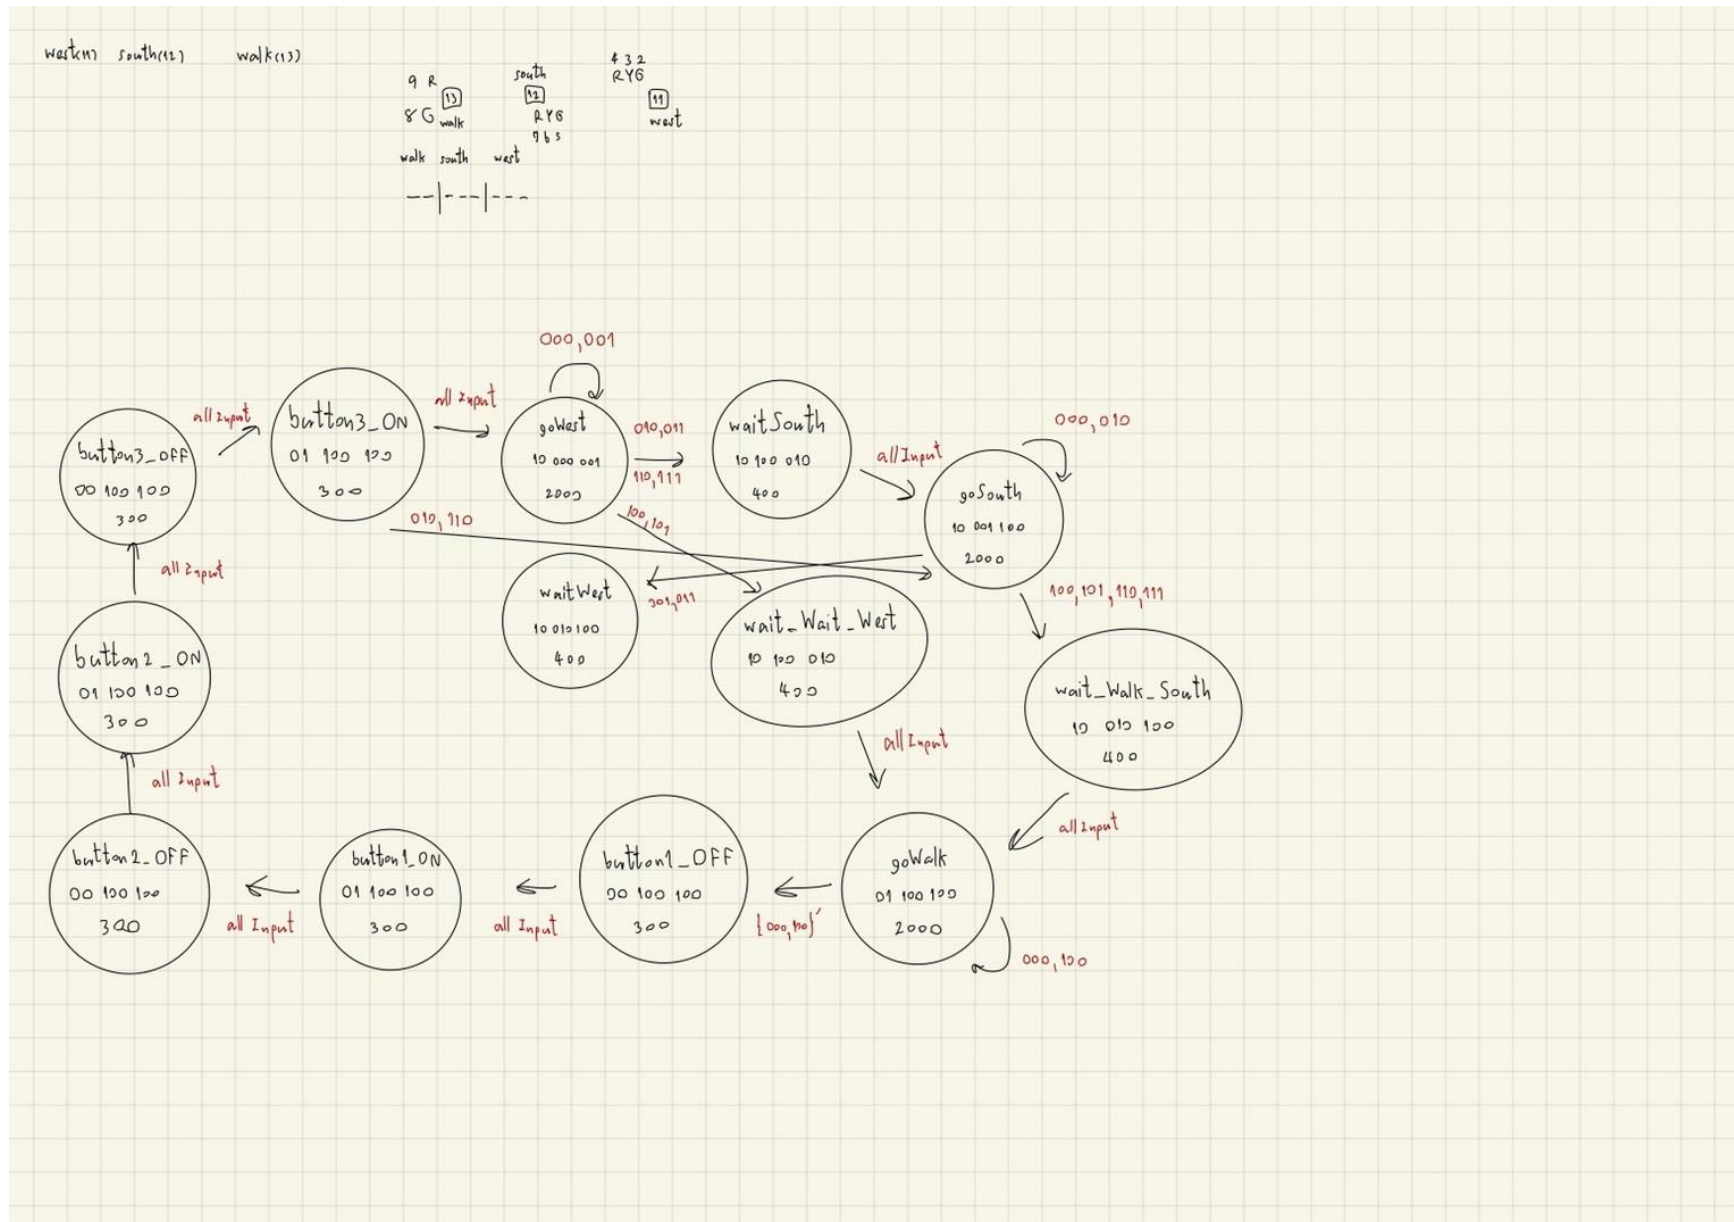 west(11) south(12) walk(13)
4 3 2
RYG
9 R
13
8 G walk
south
12
RYG
7 6 5
11
west
walk south west
--|---|---
000,001
all Input
button3_OFF
00 100 100
300
button3_ON
01 100 100
300
all Input
goWest
10 000 001
2000
010,011
110,111
waitSouth
10 100 010
400
all Input
000,010
goSouth
10 001 100
2000
010,110
100,101
waitWest
10 010 100
400
001,011
wait_Wait_West
10 100 010
400
100,101,110,111
wait_Walk_South
10 010 100
400
all Input
button2_ON
01 100 100
300
all Input
all Input
all Input
button2_OFF
00 100 100
300
all Input
button1_ON
01 100 100
300
all Input
button1_OFF
00 100 100
300
{000,100}'
goWalk
01 100 100
2000
000,100